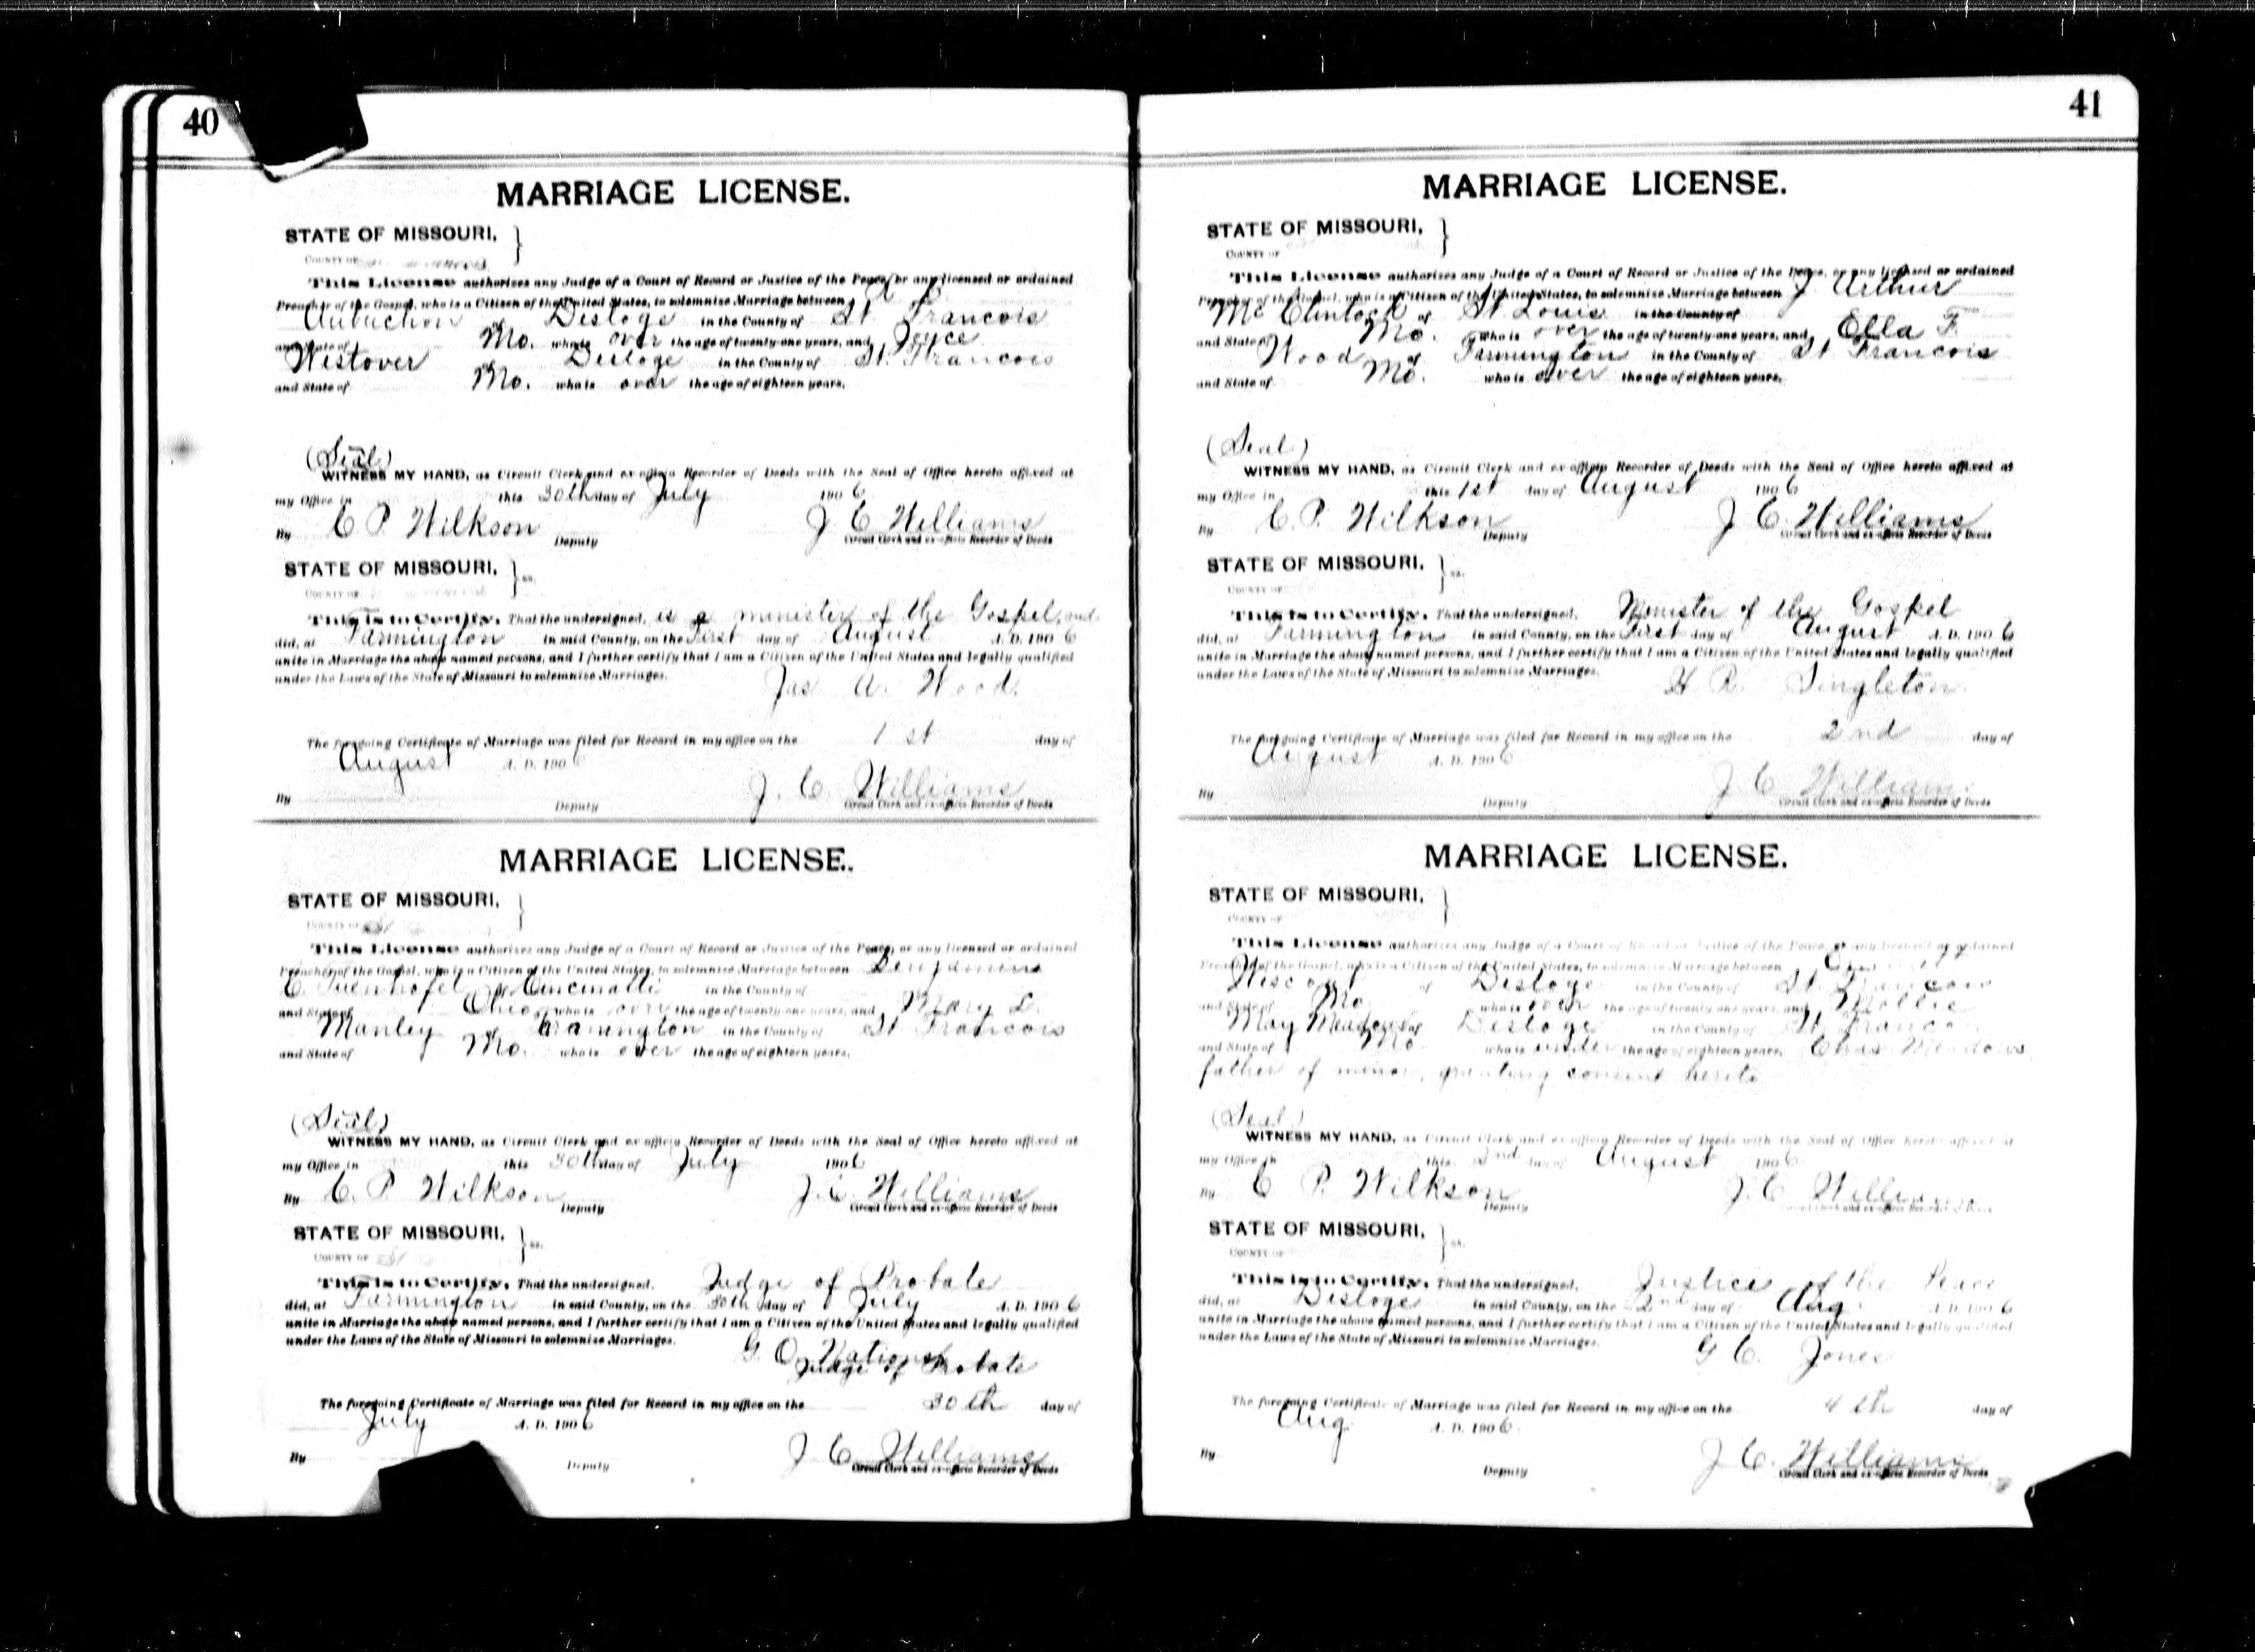 40
MARRIAGE LICENSE.
STATE OF MISSOURI,
COUNTY OF
This License authorizes any Judge of a Court of Record or Justice of the Peace, or any licensed or ordained
Preacher of the Gospel, who is a Citizen of the United States, to solemnize Marriage between
Aubuchon of Desloge in the County of St. Francois
and State of Mo. who is over the age of twenty-one years, and Joyce
Westover of Desloge in the County of St. Francois
and State of Mo. who is over the age of eighteen years.
(Seal)
WITNESS MY HAND, as Circuit Clerk and ex-officio Recorder of Deeds with the Seal of Office hereto affixed at
my Office in this 30th day of July 1906
By C P Wilkson Deputy J C Williams Circuit Clerk and ex-officio Recorder of Deeds
STATE OF MISSOURI, ss.
COUNTY OF
This is to Certify, That the undersigned, is a minister of the Gospel, and
did, at Farmington in said County, on the First day of August A. D. 1906
unite in Marriage the above named persons, and I further certify that I am a Citizen of the United States and legally qualified
under the Laws of the State of Missouri to solemnize Marriages.
Jas A. Wood.
The foregoing Certificate of Marriage was filed for Record in my office on the 1st day of
August A. D. 1906
By Deputy J. C. Williams Circuit Clerk and ex-officio Recorder of Deeds
MARRIAGE LICENSE.
STATE OF MISSOURI,
COUNTY OF St
This License authorizes any Judge of a Court of Record or Justice of the Peace, or any licensed or ordained
Preacher of the Gospel, who is a Citizen of the United States, to solemnize Marriage between Benjamin
C. Tuenhofel of Cincinatti in the County of
and State of Ohio who is over the age of twenty-one years, and Mary L.
Manley of Farmington in the County of St Francois
and State of Mo. who is over the age of eighteen years.
(Seal)
WITNESS MY HAND, as Circuit Clerk and ex-officio Recorder of Deeds with the Seal of Office hereto affixed at
my Office in this 30th day of July 1906
By C. P Wilkson Deputy J. C. Williams Circuit Clerk and ex-officio Recorder of Deeds
STATE OF MISSOURI, ss.
COUNTY OF St
This is to Certify, That the undersigned, Judge of Probate
did, at Farmington in said County, on the 30th day of July A. D. 1906
unite in Marriage the above named persons, and I further certify that I am a Citizen of the United States and legally qualified
under the Laws of the State of Missouri to solemnize Marriages.
G. O. Nations
Judge of Probate
The foregoing Certificate of Marriage was filed for Record in my office on the 30th day of
July A. D. 1906
By Deputy J C Williams Circuit Clerk and ex-officio Recorder of Deeds
41
MARRIAGE LICENSE.
STATE OF MISSOURI,
COUNTY OF
This License authorizes any Judge of a Court of Record or Justice of the Peace, or any licensed or ordained
Preacher of the Gospel, who is a Citizen of the United States, to solemnize Marriage between J. Arthur
McClintock of St Louis in the County of
and State of Mo. who is over the age of twenty-one years, and Ella F.
Wood of Farmington in the County of St Francois
and State of Mo. who is over the age of eighteen years.
(Seal)
WITNESS MY HAND, as Circuit Clerk and ex-officio Recorder of Deeds with the Seal of Office hereto affixed at
my Office in this 1st day of August 1906
By C. P. Wilkson Deputy J C. Williams Circuit Clerk and ex-officio Recorder of Deeds
STATE OF MISSOURI, ss.
COUNTY OF
This is to Certify, That the undersigned, Minister of the Gospel
did, at Farmington in said County, on the First day of August A. D. 1906
unite in Marriage the above named persons, and I further certify that I am a Citizen of the United States and legally qualified
under the Laws of the State of Missouri to solemnize Marriages.
Singleton.
The foregoing Certificate of Marriage was filed for Record in my office on the 2nd day of
August A. D. 1906
By Deputy J C Williams Circuit Clerk and ex-officio Recorder of Deeds
MARRIAGE LICENSE.
STATE OF MISSOURI,
COUNTY OF
This License authorizes any Judge of a Court of Record or Justice of the Peace, or any licensed or ordained
Preacher of the Gospel, who is a Citizen of the United States, to solemnize Marriage between
of Desloge in the County of St Francois
and State of Mo who is over the age of twenty-one years, and Mollie
May Meadows of Desloge in the County of St. Franco
and State of Mo who is under the age of eighteen years, Chas Meadows
father of minor, granting consent hereto
(Seal)
WITNESS MY HAND, as Circuit Clerk and ex-officio Recorder of Deeds with the Seal of Office hereto affixed at
my Office in this 2nd day of August 1906
By C P. Wilkson Deputy J. C Williams Circuit Clerk and ex-officio Recorder of Deeds
STATE OF MISSOURI, ss.
COUNTY OF
This is to Certify, That the undersigned, Justice of the Peace
did, at Desloge in said County, on the 2nd day of Aug A. D. 1906
unite in Marriage the above named persons, and I further certify that I am a Citizen of the United States and legally qualified
under the Laws of the State of Missouri to solemnize Marriages.
G C. Jones
The foregoing Certificate of Marriage was filed for Record in my office on the 4th day of
Aug. A. D. 1906
By Deputy J C. Williams Circuit Clerk and ex-officio Recorder of Deeds